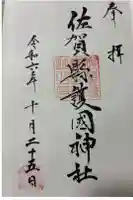 奉拝
佐賀縣護國神社
令和六年十月二十五日